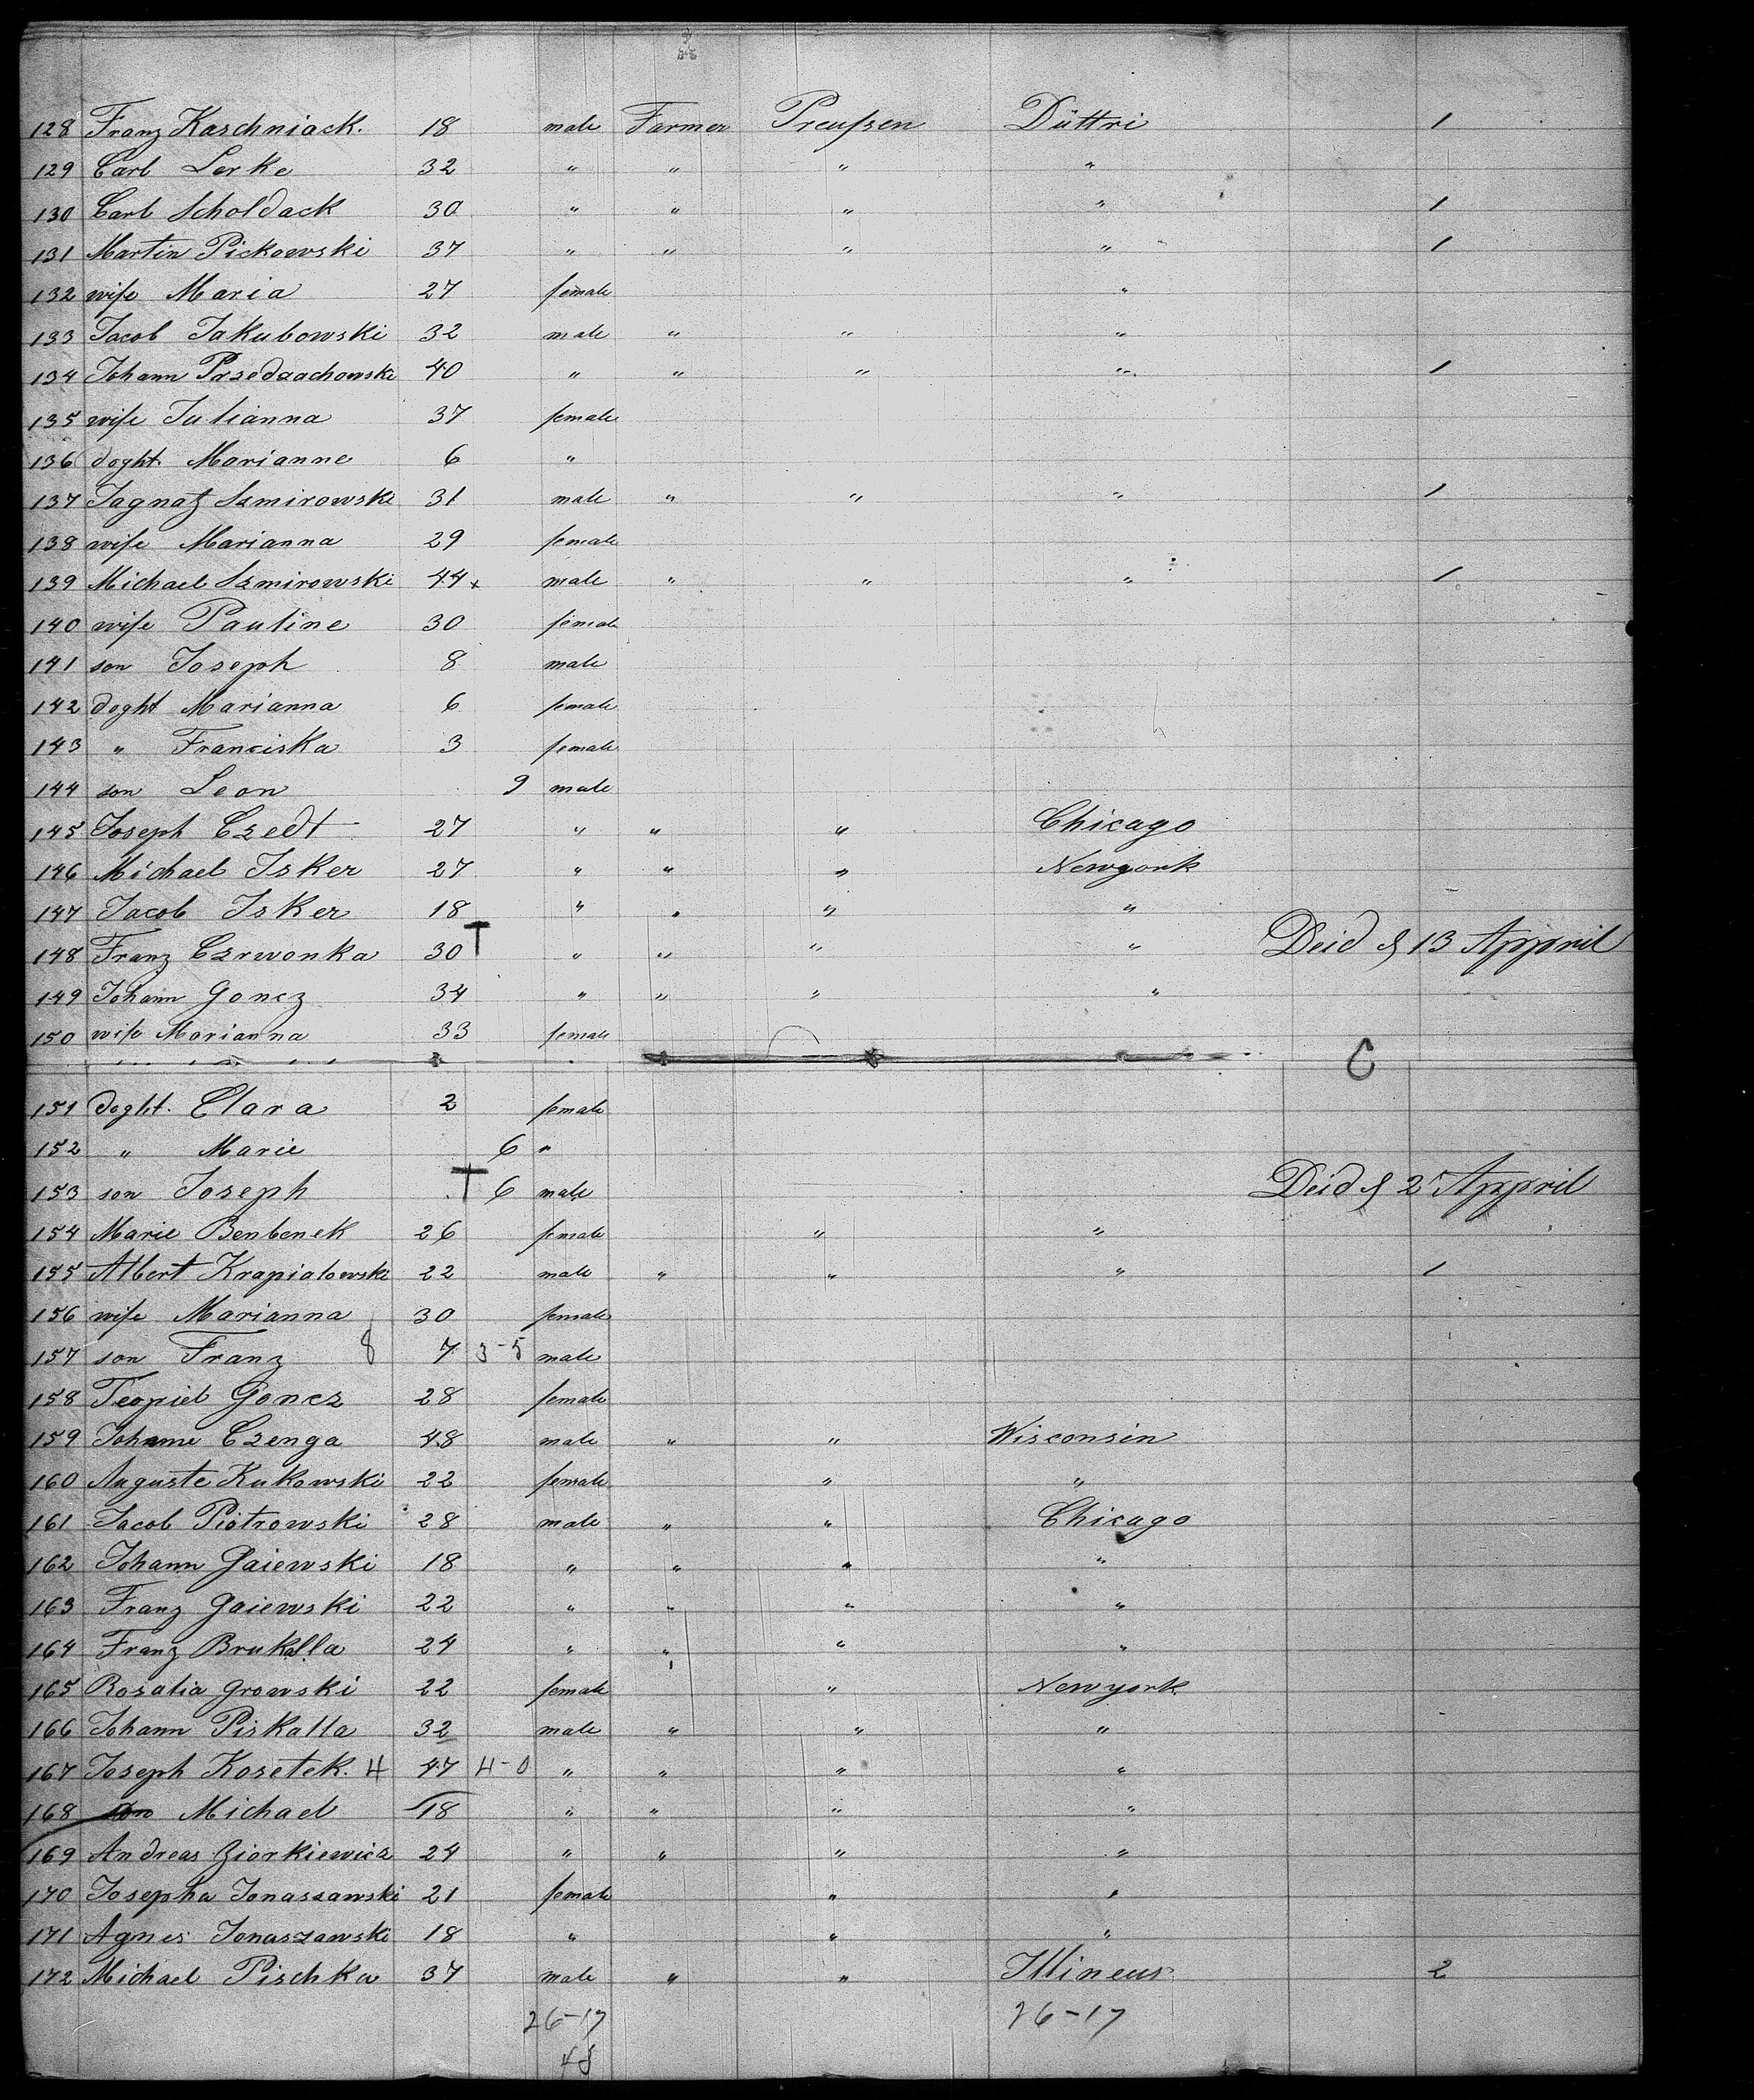 128 Franz Kaschniack. 18 male Farmer Preußen Düttri 1
129 Carl Lerke 32 " " " "
130 Carl Scholdack 30 " " " " 1
131 Martin Pickowski 37 " " " " 1
132 wife Maria 27 female "
133 Jacob Jakubowski 32 male " " "
134 Johann Przedzachowski 40 " " " " 1
135 wife Julianna 37 female
136 doght. Marianne 6 "
137 Jagnatz Szmirowski 31 male " " " 1
138 wife Marianna 29 female
139 Michael Szmirowski 44 x male " " " 1
140 wife Pauline 30 female
141 son Joseph 8 male
142 doght Marianna 6 female
143 " Franciska 3 female
144 son Leon 9 male
145 Joseph Czedt 27 " " " Chicago
146 Michael Isker 27 " " " Newyork
147 Jacob Isker 18 " " " "
148 Franz Czrwonka 30 T " " " " Deid & 13 Appril
149 Johann Goncz 34 " " " "
150 wife Marianna 33 female
C
151 doght. Clara 2 female
152 " Marie 6 "
153 son Joseph T 6 male Deid & 2 Appril
154 Marie Benbenek 26 female " "
155 Albert Krapialowski 22 male " " " 1
156 wife Marianna 30 female
157 son Franz 8 7 3-5 male
158 Teopiel Goncz 28 female
159 Johann Czenga 48 male " " Wisconsin
160 Auguste Kukowski 22 female " "
161 Jacob Piotrowski 28 male " " Chicago
162 Johann Gaiewski 18 " " " "
163 Franz Gaiewski 22 " " " "
164 Franz Brukalla 24 " " " "
165 Rosalia Growski 22 female " Newyork
166 Johann Piskalla 32 male " " "
167 Joseph Kosetek. 4 47 4-0 " " " "
168 son Michael 18 " " " "
169 Andreas Ziorkiewicz 24 " " " "
170 Josepha Jonaszawski 21 female " "
171 Agnes Jonaszawski 18 " " "
172 Michael Pischka 37 male " " Illineus 2
26-17 26-17